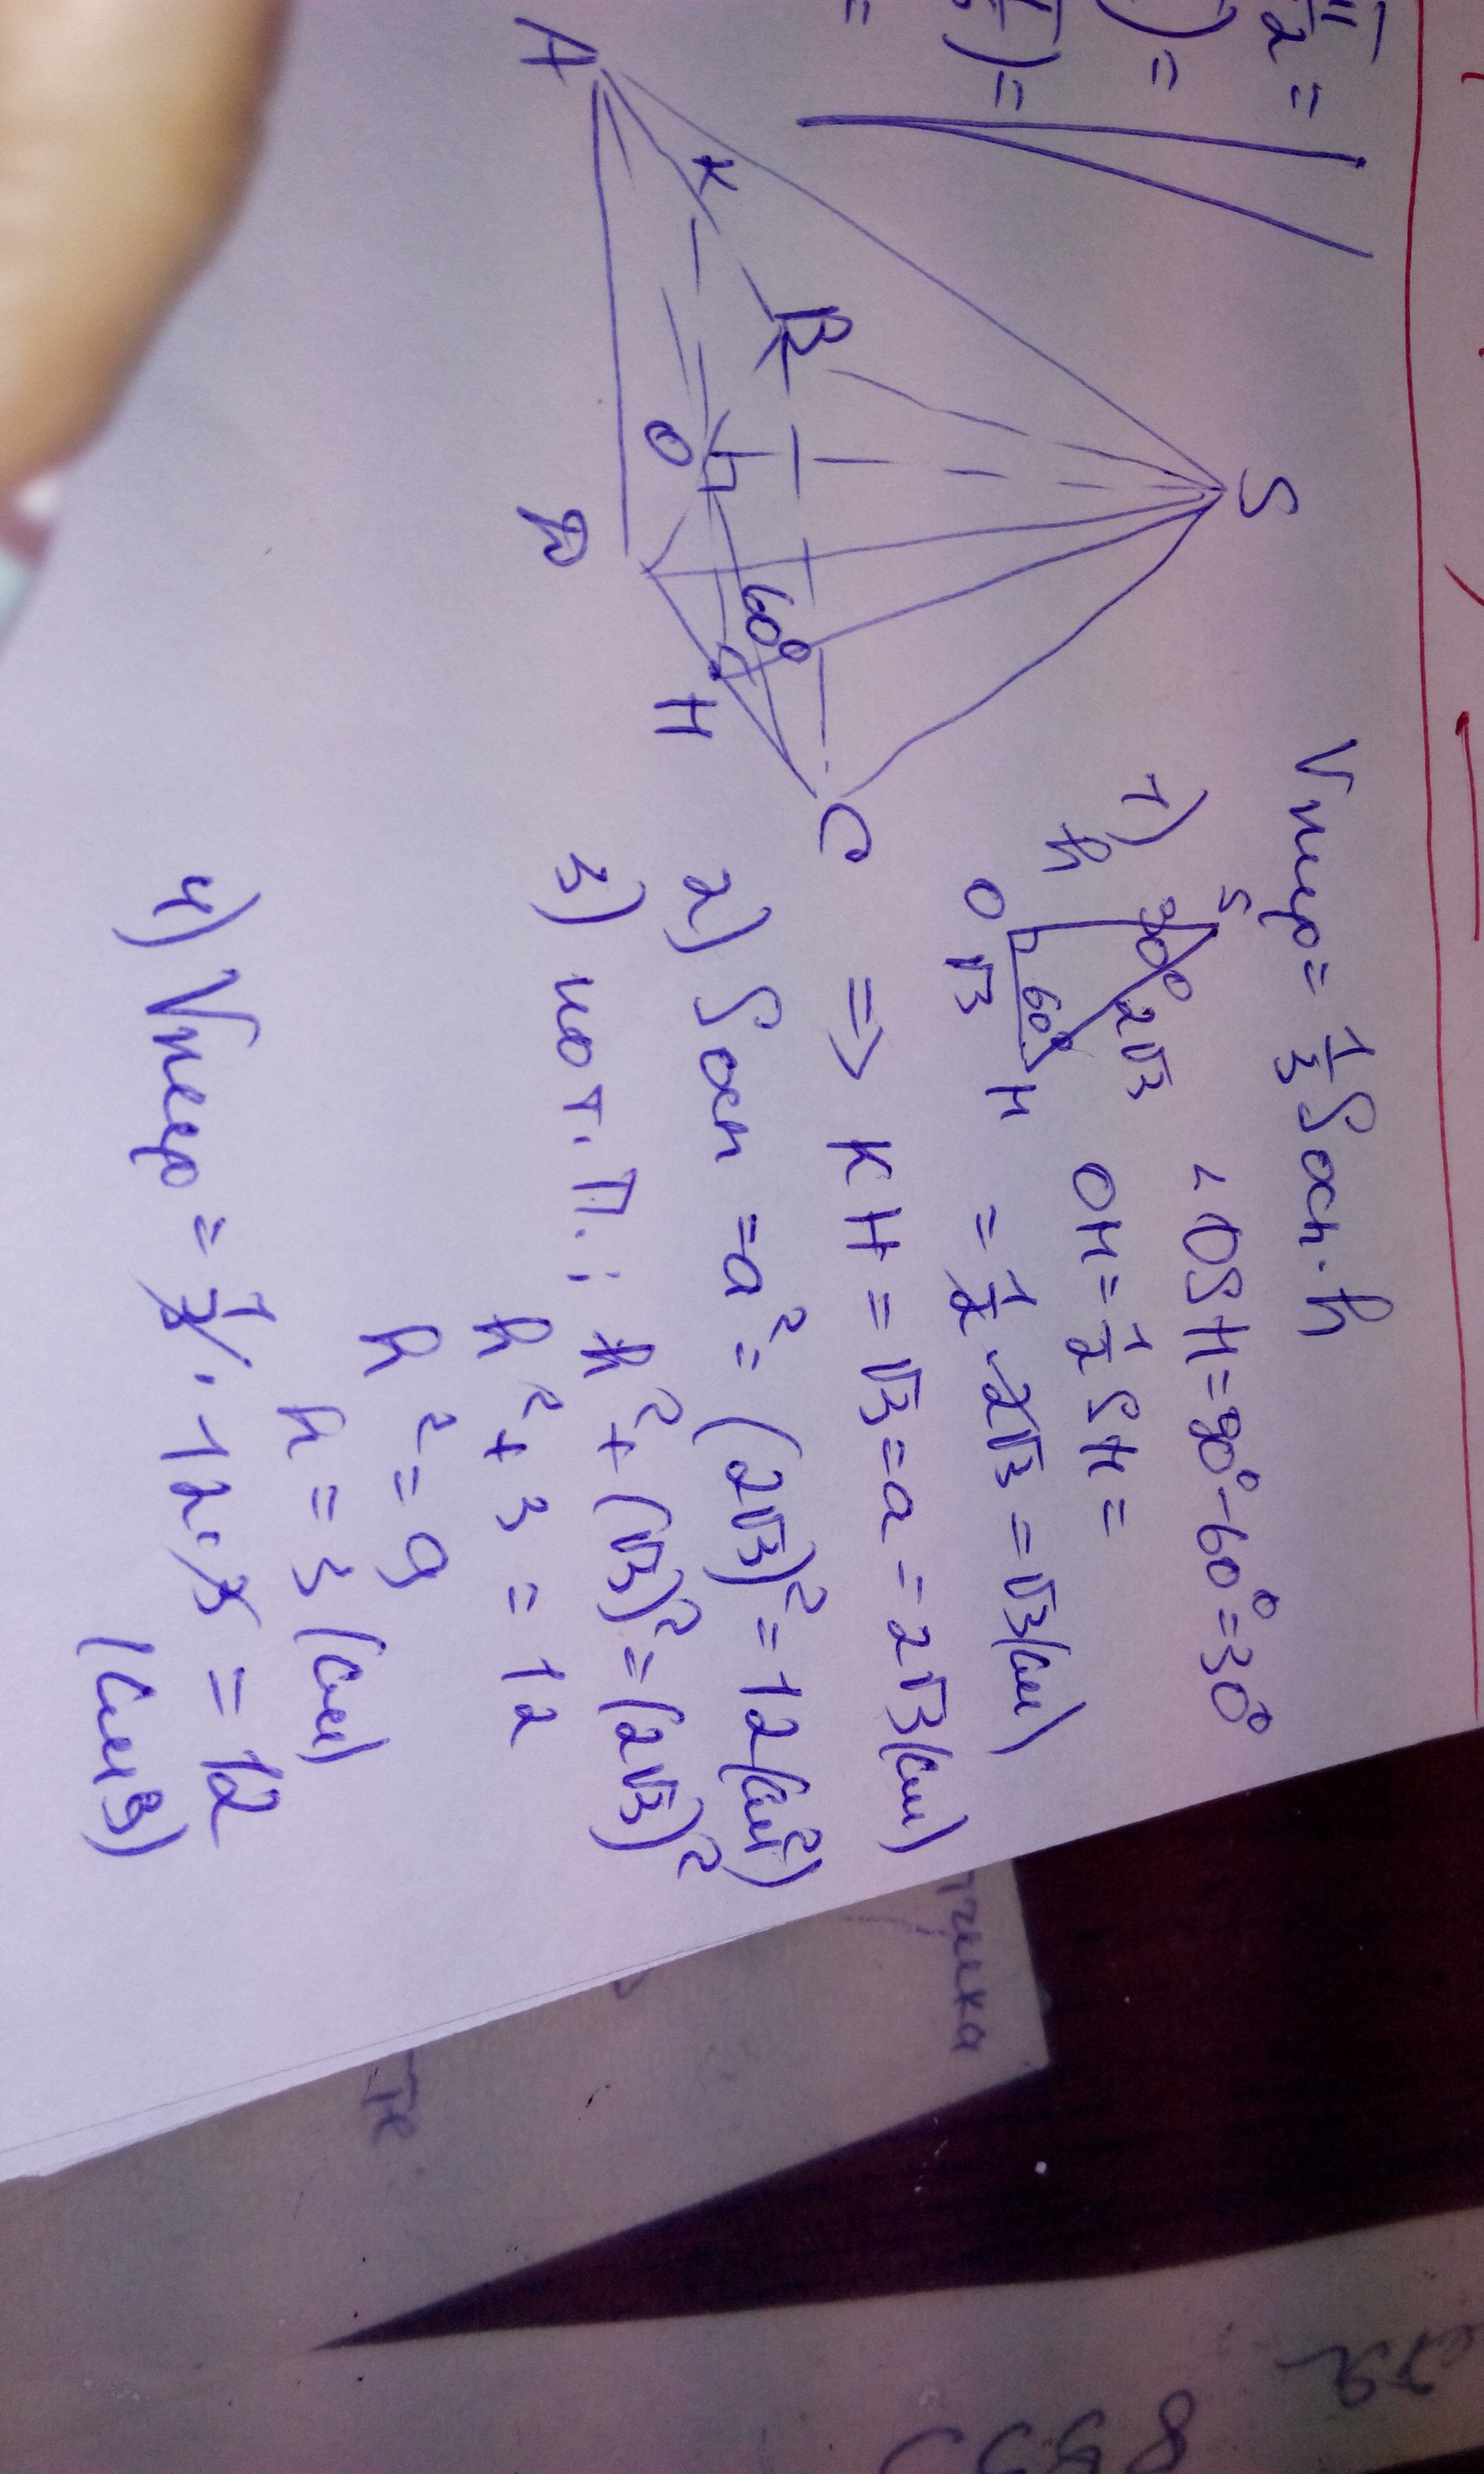 S
A
K
B
O
D
H
C
60°
Vпир = 1/3 Sосн · h
1) S
h
30°
2√3
60°
O
√3
H
∠OSH = 90° - 60° = 30°
OH = 1/2 SH =
= 1/2 · 2√3 = √3 (см)
=> KH = √3 = a = 2√3 (см)
2) Sосн = a² = (2√3)² = 12 (см²)
3) по т. П.: h² + (√3)² = (2√3)²
h² + 3 = 12
h² = 9
h = 3 (см)
4) Vпир = 1/3 · 12 · 3 = 12
(см³)